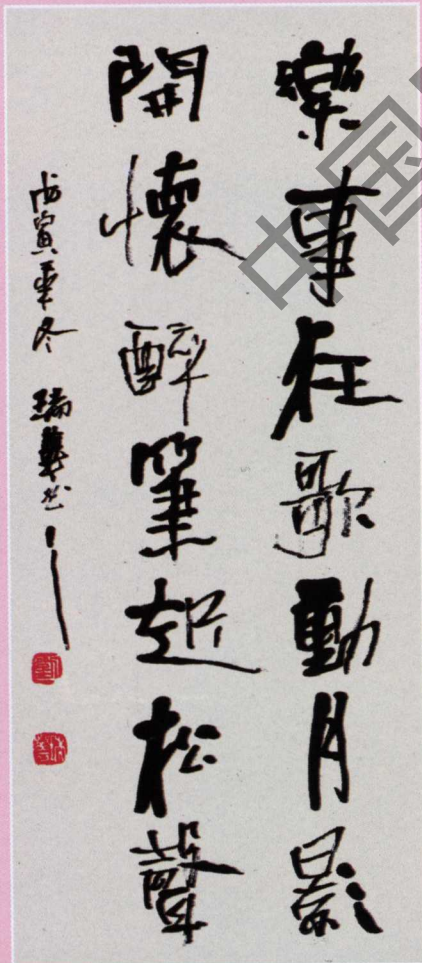 樂事狂歌動月影
開懷醉筆起松聲
戊寅年冬 瑞華书
中国